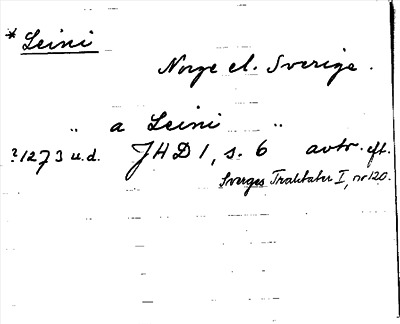 * Leini
Norge el. Sverige.
„ a Leini „
?1273 u.d. JHD 1, s. 6 avtr. eft.
Sverges Traktater I, nr 120.